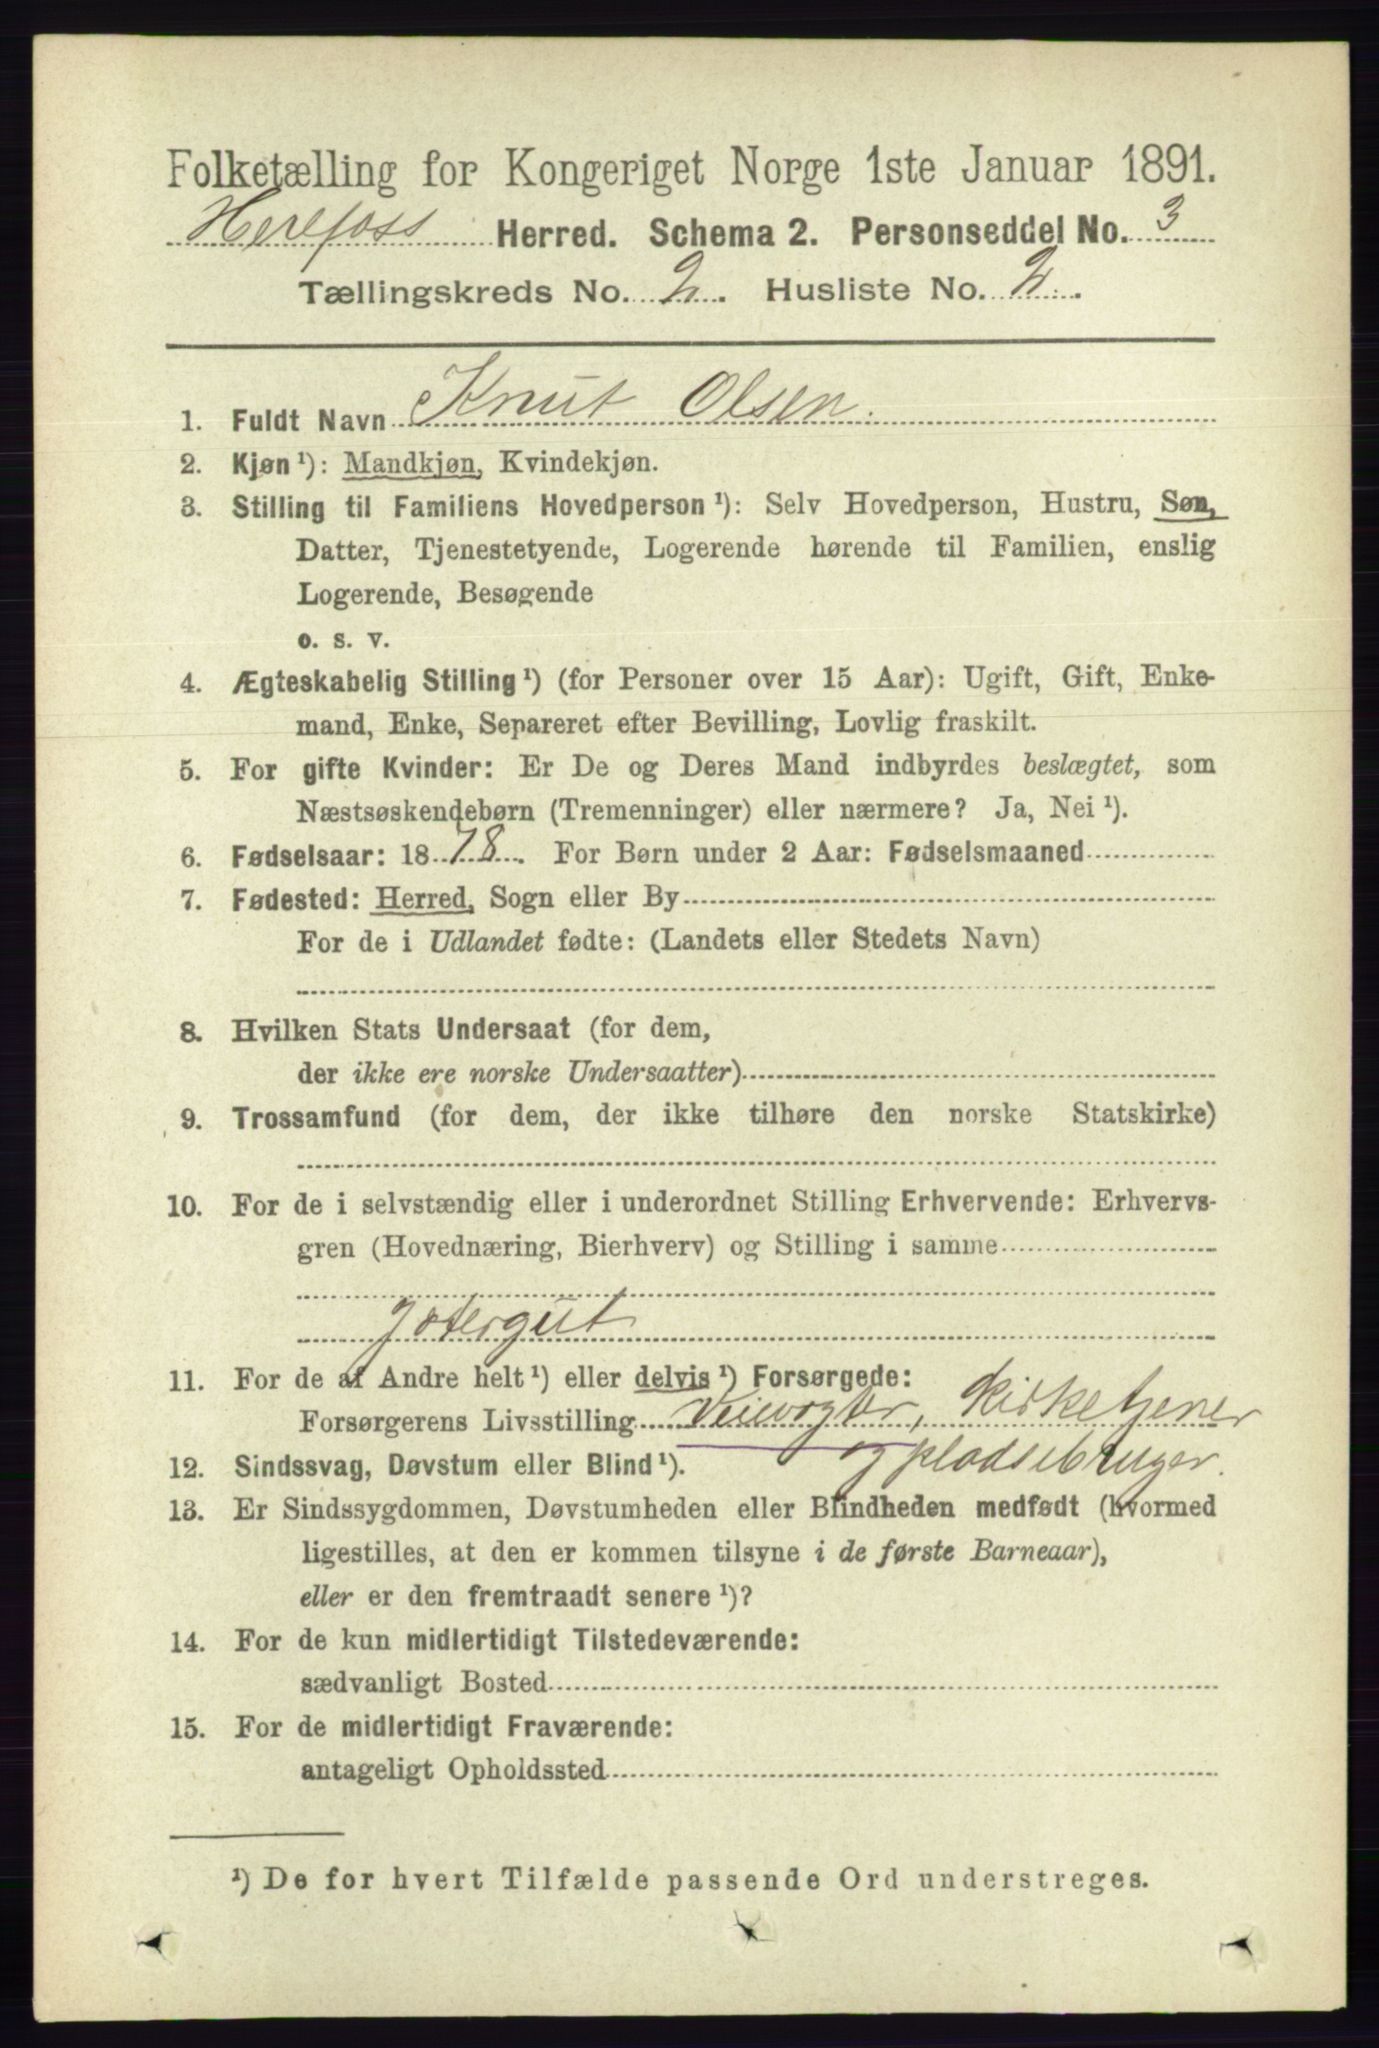 Folketælling for Kongeriget Norge 1ste Januar 1891.
Herefoss Herred. Schema 2. Personseddel No. 3
Tællingskreds No. 2. Husliste No. 2.
1. Fuldt Navn Knut Olsen.
2. Kjøn ¹): Mandkjøn, Kvindekjøn.
3. Stilling til Familiens Hovedperson ¹): Selv Hovedperson, Hustru, Søn,
Datter, Tjenestetyende, Logerende hørende til Familien, enslig
Logerende, Besøgende
o. s. v.
4. Ægteskabelig Stilling ¹) (for Personer over 15 Aar): Ugift, Gift, Enke-
mand, Enke, Separeret efter Bevilling, Lovlig fraskilt.
5. For gifte Kvinder: Er De og Deres Mand indbyrdes beslægtet, som
Næstsøskendebørn (Tremenninger) eller nærmere? Ja, Nei ¹).
6. Fødselsaar: 1878. For Børn under 2 Aar: Fødselsmaaned
7. Fødested: Herred, Sogn eller By
For de i Udlandet fødte: (Landets eller Stedets Navn)
8. Hvilken Stats Undersaat (for dem,
der ikke ere norske Undersaatter)
9. Trossamfund (for dem, der ikke tilhøre den norske Statskirke)
10. For de i selvstændig eller i underordnet Stilling Erhvervende: Erhvervs-
gren (Hovednæring, Bierhverv) og Stilling i samme
Jetergut
11. For de af Andre helt ¹) eller delvis ¹) Forsørgede:
Forsørgerens Livsstilling Veivogter, Kirketjener
og pladsebruger.
12. Sindssvag, Døvstum eller Blind ¹).
13. Er Sindssygdommen, Døvstumheden eller Blindheden medfødt (hvormed
ligestilles, at den er kommen tilsyne i de første Barneaar),
eller er den fremtraadt senere ¹)?
14. For de kun midlertidigt Tilstedeværende:
sædvanligt Bosted
15. For de midlertidigt Fraværende:
antageligt Opholdssted
¹) De for hvert Tilfælde passende Ord understreges.